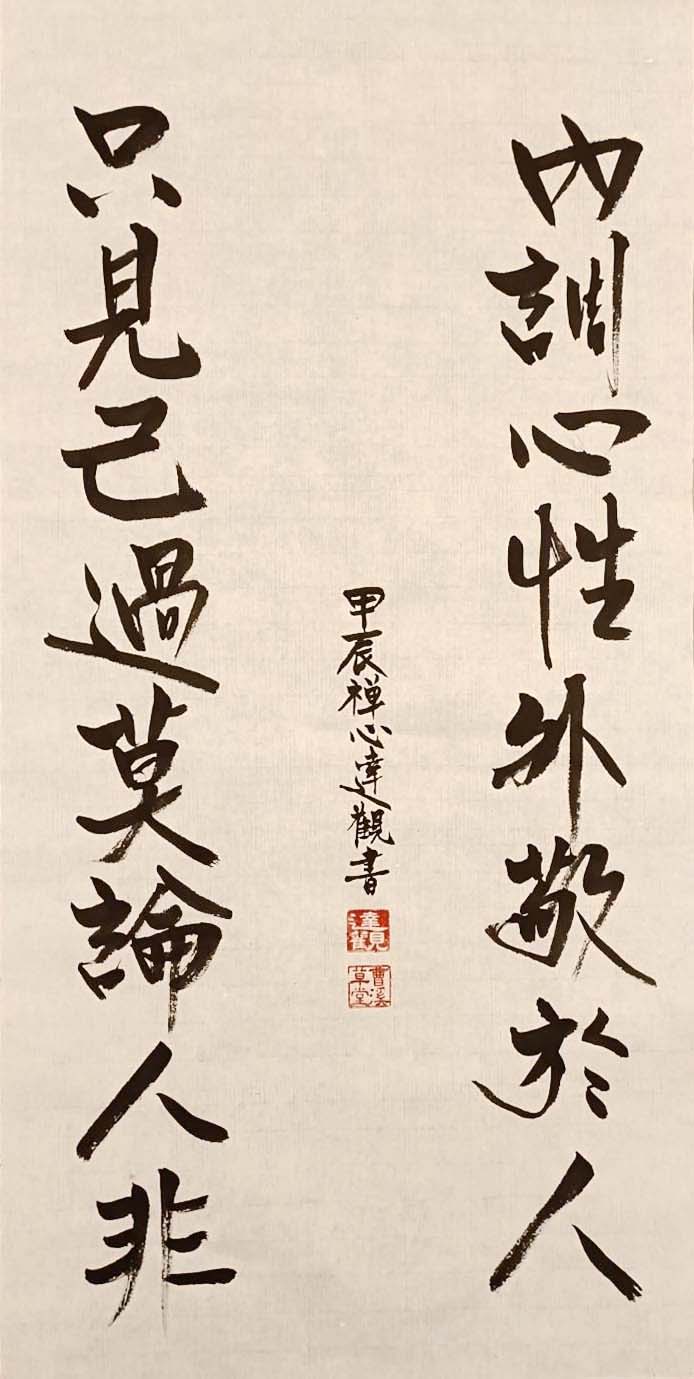 內調心性外敬於人
只見己過莫論人非
甲辰禅心達觀書
達觀
曹溪草堂